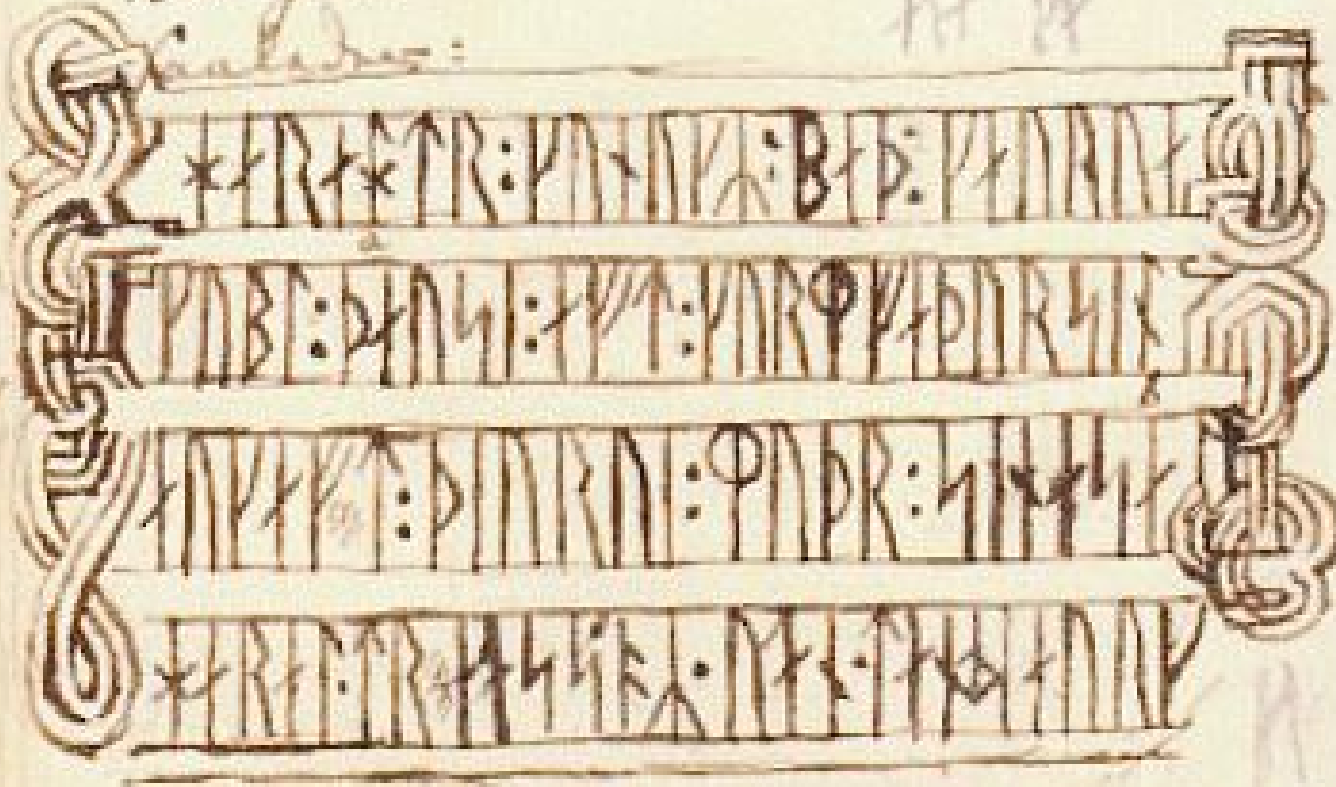 ᚼᛅᚱᛅᛚᛏᚱ:ᚴᚢᚾᚢᚴᛦ:ᛒᛅᚦ:ᚴᛅᚢᚱᚢᛅ
ᚴᚢᛒᛚ:ᚦᛅᚢᛋᛁ:ᛅᚠᛏ:ᚴᚢᚱᛘᚠᛅᚦᚢᚱᛋᛁᚾ
ᛅᚢᚴᛅᚠᛏ:ᚦᛁᚢᚱᚢᛁ:ᛘᚢᚦᚱ:ᛋᛁᚾᛅᛋᛅ
ᚼᛅᚱᛅᛚ·ᛏᚱᛁᛅᛋᛋᚬᛦ·ᚢᛅᚾ·ᛏᛅᚾᛘᛅᚢᚱᚴ